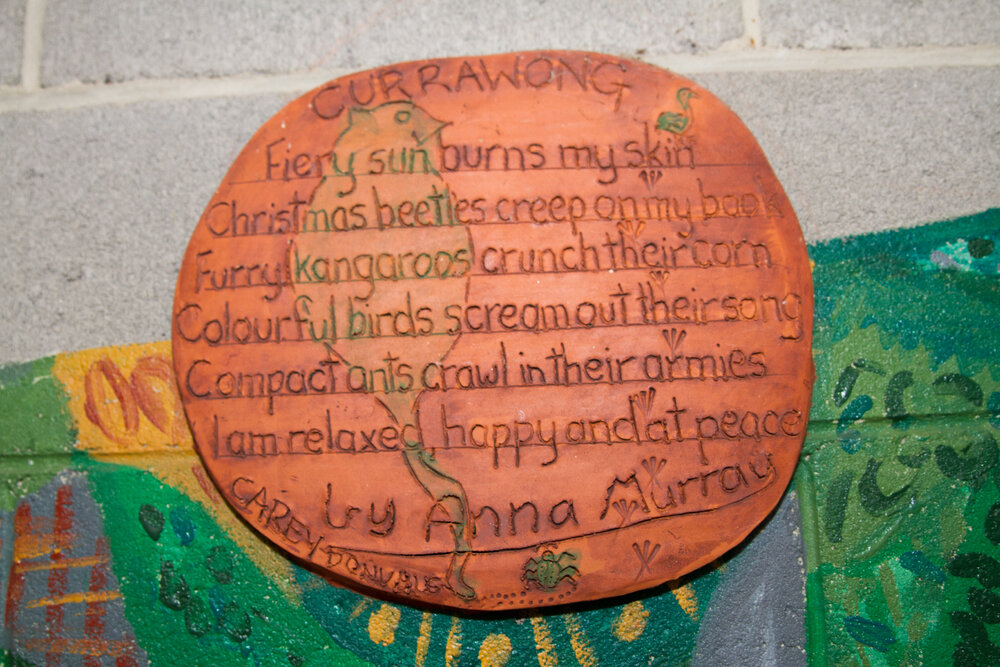 CURRAWONG
Fiery sun burns my skin
Christmas beetles creep on my back
Furry kangaroos crunch their corn
Colourful birds scream out their song
Compact ants crawl in their armies
I am relaxed happy and at peace
by Anna Murray
CAREY